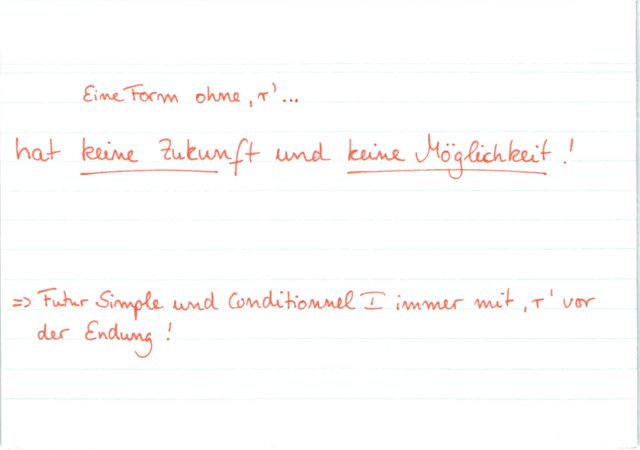 Eine Form ohne ‚r'...
hat keine Zukunft und keine Möglichkeit!
=> Futur Simple und Conditionnel I immer mit ‚r' vor
der Endung!